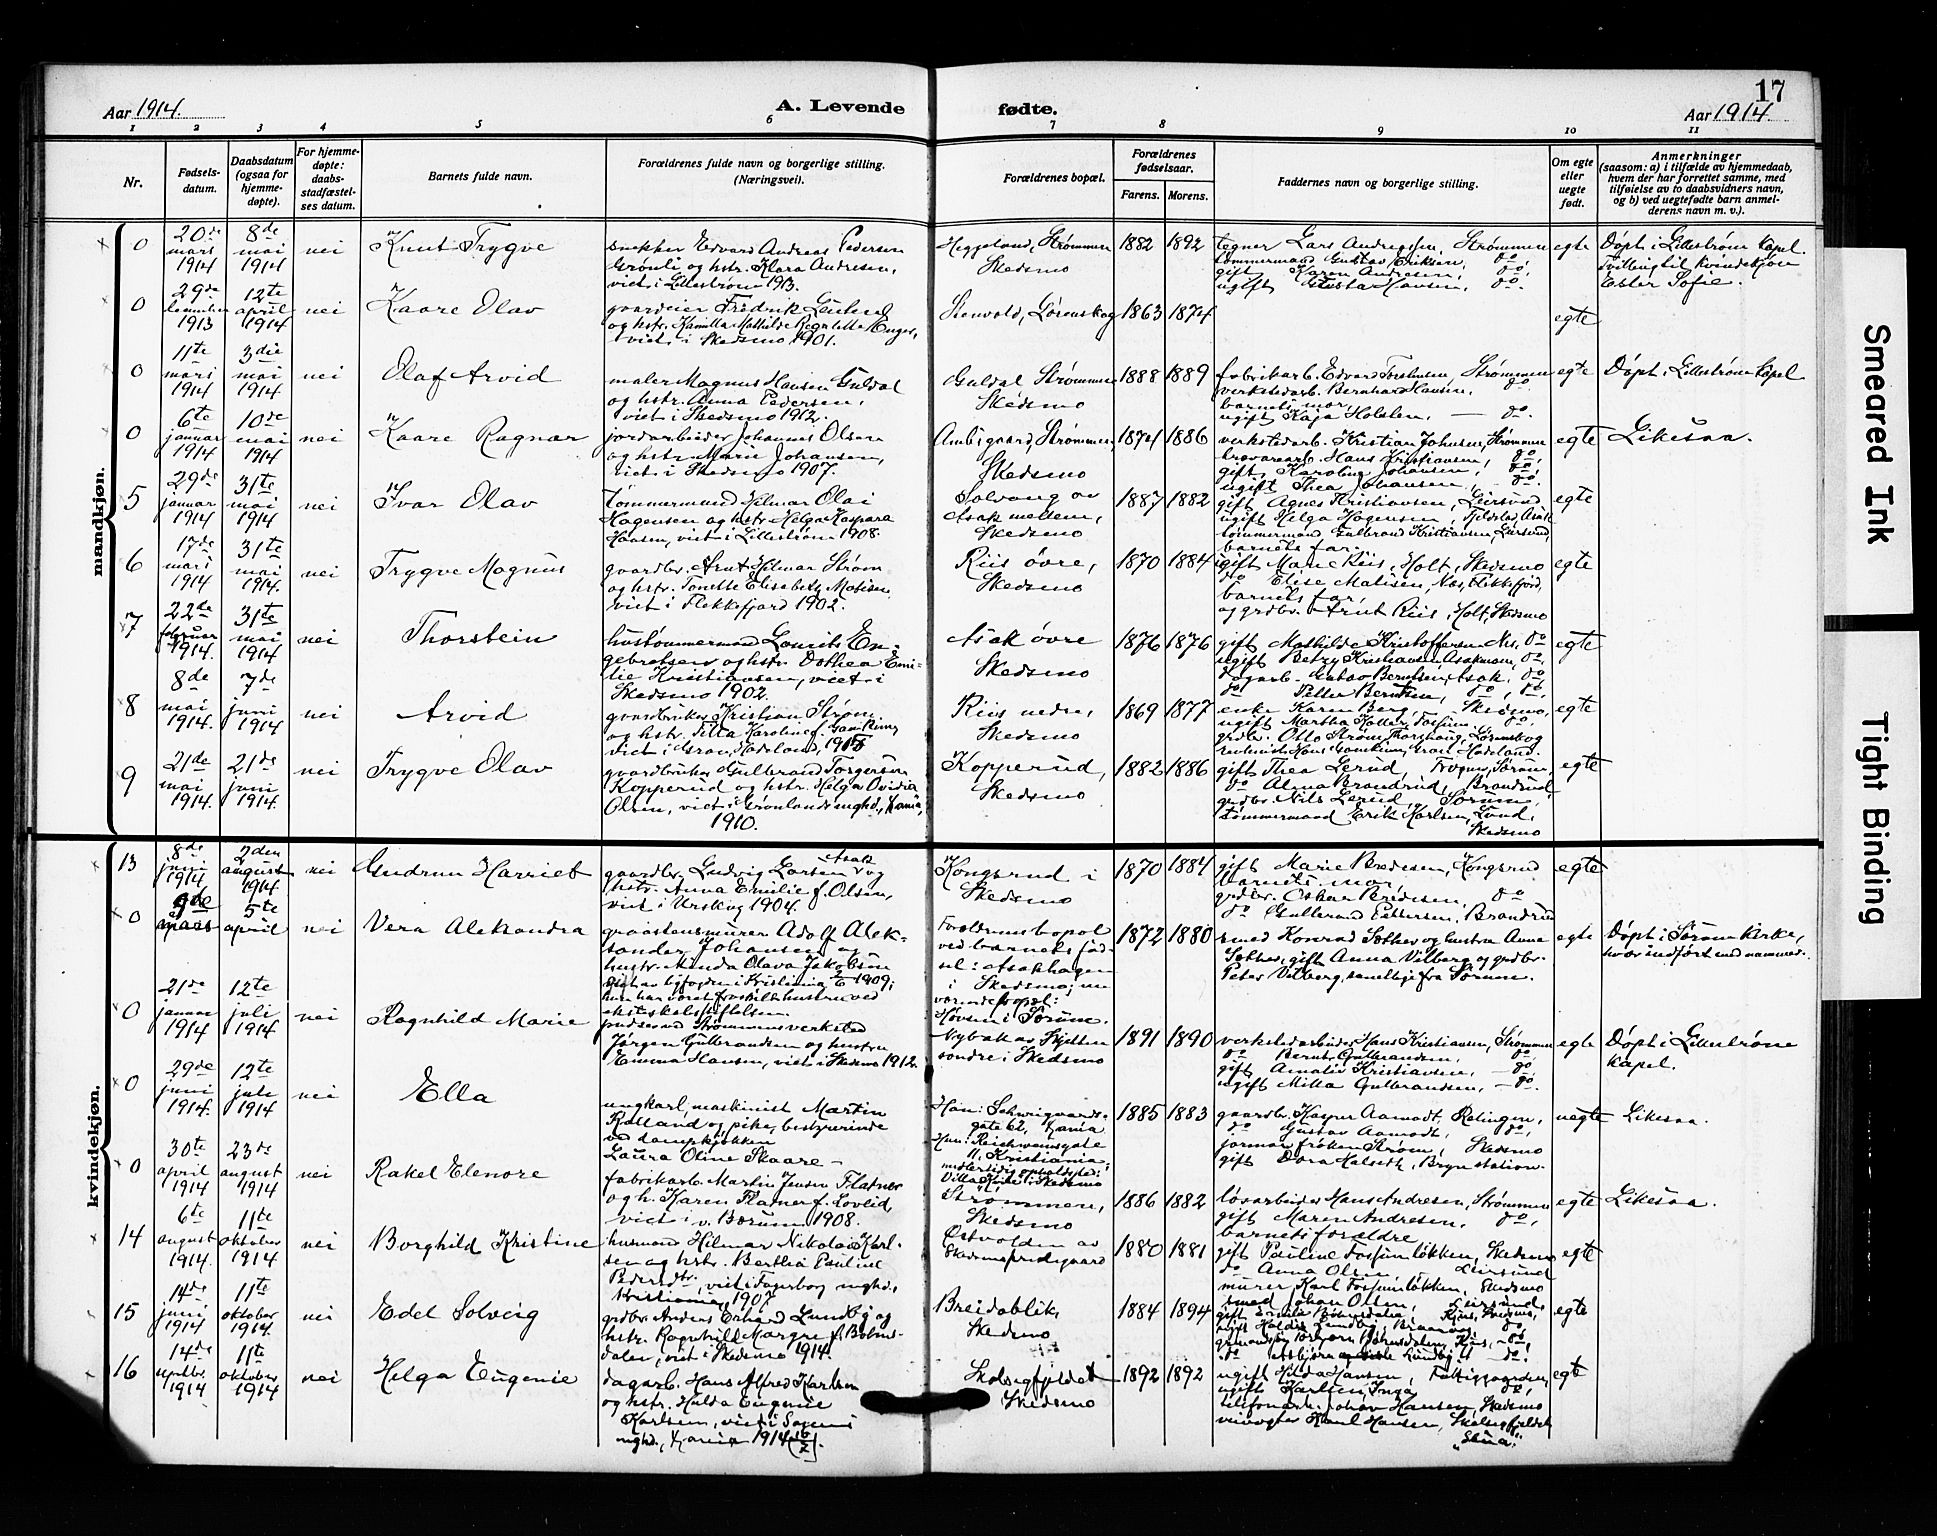 17
Aar 1914.
A. Levende fødte.
Aar 1914.
1 2 3 4 5 6 7 8 9 10 11
Nr.
Fødsels-
datum.
Daabsdatum
(ogsaa for
hjemme-
døpte).
For hjemme-
døpte:
daabs-
stadfæstel-
ses datum.
Barnets fulde navn.
Forældrenes fulde navn og borgerlige stilling.
(Næringsvei).
Forældrenes bopæl.
Forældrenes
fødselsaar.
Farens. Morens.
Faddernes navn og borgerlige stilling.
Om egte
eller
uegte
født.
Anmerkninger
(saasom: a) i tilfælde av hjemmedaab,
hvem der har forrettet samme, med
tilføielse av to daabsvidners navn,
og b) ved uegtefødte barn anmel-
derens navn m. v.).
mandkjøn.
0
20de
mars
1914
8de
mai
1914
nei
Knut Trygve
snekker Edvard Andreas Pedersen
Grønli og hstr. Klara Andresen,
viet i Lillestrøm 1913.
Heggeland, Strømmen
Skedsmo
1882
1892
tegner Lars Andressen, Strømmen
tømmermand Gustav Eriksen, do.
gift Karen Andresen, do.
ugift Hansen, do.
egte
Døpt i Lillestrøm kapel.
Tvilling til kvindekjøn
Ester Sofie.
0
29de
december
1913
12te
april
1914
nei
Kaare Olav
gaardeier Fredrik
og hstr. Kamilla Mathilde Enger,
viet i Skedsmo 1901.
Stenvold, Lørenskog
1863
1874
egte
0
11te
mars
1914
3die
mai
1914
nei
Olaf Arvid
maler Magnus Hansen Guldal
og hstr. Anna Pedersen,
viet i Skedsmo 1912.
Guldal Strømmen
Skedsmo
1888
1889
fabrikarb. Edvard Strømmen
verkstedarb. Bernhard Hansen, do.
barnets mor,
ugift Kaja do.
egte
Døpt i Lillestrøm kapel
0
6te
januar
1914
10de
mai
1914
nei
Kaare Ragnar
jordarbeider Johannes Olsen
og hstr. Marie Johansen,
viet i Skedsmo 1907.
Strømmen,
Skedsmo
1874
1886
verkstedarb. Kristian Johnsen, Strømmen
Hans Kristiansen, do.
gift Karoline Johansen, do.
ugift Thea Johansen, do.
egte
Likesaa.
5
29de
januar
1914
31te
mai
1914
nei
Ivar Olav
tømmermand Hilmar Olai
Hagensen og hstr. Helga Kaspara
Hansen, viet i Lillestrøm 1908.
Solvang av
Asak mellem,
Skedsmo
1887
1882
gift Agnes Kristiansen, Leirsund
ugift Helga Hagensen, Asak
tømmermand Gulbrand Kristiansen, Leirsund,
barnets far.
egte
6
17de
mars
1914
31te
mai
1914.
nei
Trygve Magnus
gaardbr. Arnt Hilmar Strøm
og hstr. Tonette Elisabeth Matisen,
viet i Flekkefjord 1902.
Riis øvre,
Skedsmo
1870
1884
ugift Marie Riis, Holt, Skedsmo
do Elise Matisen, Næs, Flekkefjord,
barnets far,
og grdbr. Arnt Riis, Holt, Skedsmo
egte
7
22de
februar
1914.
31te
mai
1914
nei
Thorstein
hustømmermand Laurits En-
gebretsen og hstr. Dorthea Emi-
lie Kristiansen, viet i
Skedsmo 1902.
Asak øvre
Skedsmo
1876
1876
gift Mathilde Kristoffersen do
ugift Betzy Kristiansen, Asak do,
dagarb. Gustav Berntsen, Asak, do
do Petter Berntsen, do, do,
egte
8
8de
mai
1914.
7de
juni
1914
nei
Arvid
gaardbruker Kristian Strøm
og hstr. Karoline f.
viet i Gran, Hadeland, 1905
Riis nedre,
Skedsmo
1869
1877
enke Karen Berg, Skedsmo,
ugift Martha Koller, Fossum, do,
grdbr. Otto Strøm, Thorshaug, Lørenskog
Hans Gran, Hadeland.
egte
9
21de
mai
1914.
21de
juni
1914.
nei
Trygve Olav
gaardbruker Gulbrand Torgersen
Kopperud og hstr. Helga Ovidia
Olsen, viet i Grønlands mghd., Kania,
1910.
Kopperud,
Skedsmo
1882
1886
gift Thea Lerud, Frogner, Sørum,
do Alma Brandrud, Brandrud
grdbr. Nils Lerud, Sørum,
tømmermand Erik Karlsen, Lund,
Skedsmo
egte
kvindekjøn.
13
8de
juni
1914
2den
august
1914
nei
Gudrun Harriet
gaardbr. Ludvig Larsen Asak og
hstr. Anna Emilie f. Olsen,
viet i Urskog 1904.
Kongsrud i
Skedsmo
1870
1884
gift Marie Bredesen, Kongsrud
barnets mor,
grdbr. Oskar Bredesen, do
do Gulbrand Pettersen, Brandrud
egte
0
9de
mars
5te
april
nei
Vera Aleksandra
graastensmurer Adolf Alek-
sander Johansen og
hustru Minda Olava Jakobsen
viet av byfogden i Kristiania 1909;
hun har været fraskilt hustru ved
ekteskabsstiftelsen.
Forældrenes bopæl
ved barnets fød-
sel: Asakhagen
i Skedsmo; nu
værende bopæl:
Høvsen i Sørum.
1872
1880
smed Konrad Sæther og hustru Anna
Sæther, gift Anna Vilberg og grdbr.
Peter Vilberg, samtlige fra Sørum.
egte
Døpt i Sørum kirke,
hvor indført med nummer.
0
21de
januar
1914
12te
juli
1914
nei
Ragnhild Marie
pudser ved Strømmens verksted
Jørgen Gulbrandsen og hustru
Emma Hansen, viet i Skedsmo 1912.
Nybak av Skjetten
søndre i Skedsmo
1891
1890
verkstedarbeider Hans Kristiansen, Strømmen
do Bernt Gulbrandsen, do.
gift Amalie Kristiansen, do.
ugift Milla Gulbrandsen, do.
egte
Døpt i Lillestrøm
kapel.
0
29de
juni
1914.
12te
juli
1914
nei
Ella
ungkarl, maskinist Martin
Rolland og pike, bestyrerinde
ved dampkjøkken
Laura Oline Skaare
Han: Schweigaards-
gate 62, Kania
Hun: Reichweinsgate
11, Kristiania,
midlertidig opholdssted:
Villa i Skedsmo
1885
1883
gaardbr. Kasper Aamodt, Rælingen,
do Gustav Aamodt, do,
jormor frøken Strøm, Skedsmo
gift Dora Halseth, Bryn station.
uegte
Likesaa.
0
30te
april
1914
23de
august
1914
nei
Rakel Elenore
fabrikarb. Martin Jensen Flatner
og h. Karen Flatner f. Løvlid,
viet i v. Bærum 1908.
Strømmen,
Skedsmo
1886
1882
løsarbeider Hans Andresen, Strømmen
gift Maren Andresen, do,
barnets forældre
egte
Likesaa.
14
6te
august
1914.
11te
oktober
1914
nei
Borghild Kristine
husmand Hilmar Nikolai Karl-
sen og hstr. Berthea Pauline
Pedersdtr., viet i Fagerborg mghd.
Kristiania, 1907
Østvolden av
Skedsmo prestegaard
1880
1881
gift Pauline Fossumløkken, Skedsmo
do Anna Olsen, Leirsund
murer Karl Fossumløkken, Skedsmo
smed Johan Olsen, Leirsund
egte
15
14de
juni
1914
11te
oktober
1914.
nei
Edel Solveig
grdbr. Anders Erhard Lundby og
hstr. Ragnhild Margre f. Bøhns-
dalen, viet i Skedsmo 1914.
Breidablik,
Skedsmo
1884
1894
egte
16
14de
septbr.
1914
11te
oktober
1914
nei
Helga Eugenie
dagarb. Hans Alfred Karlsen
og hstr. Hulda Eugenie
Karlsen, viet i Sagens
mghd., Kania 1914
Skolsegfjeldet
Skedsmo
1892
1892
ugift Hilda Hansen, Fattiggaarden,
ugift Karlsen, Inga do,
telefonarb. Johan Hansen, Skedsmo
veivogter Karl Hansen, Skolsegfjeldet
egte
Smeared Ink
Tight Binding